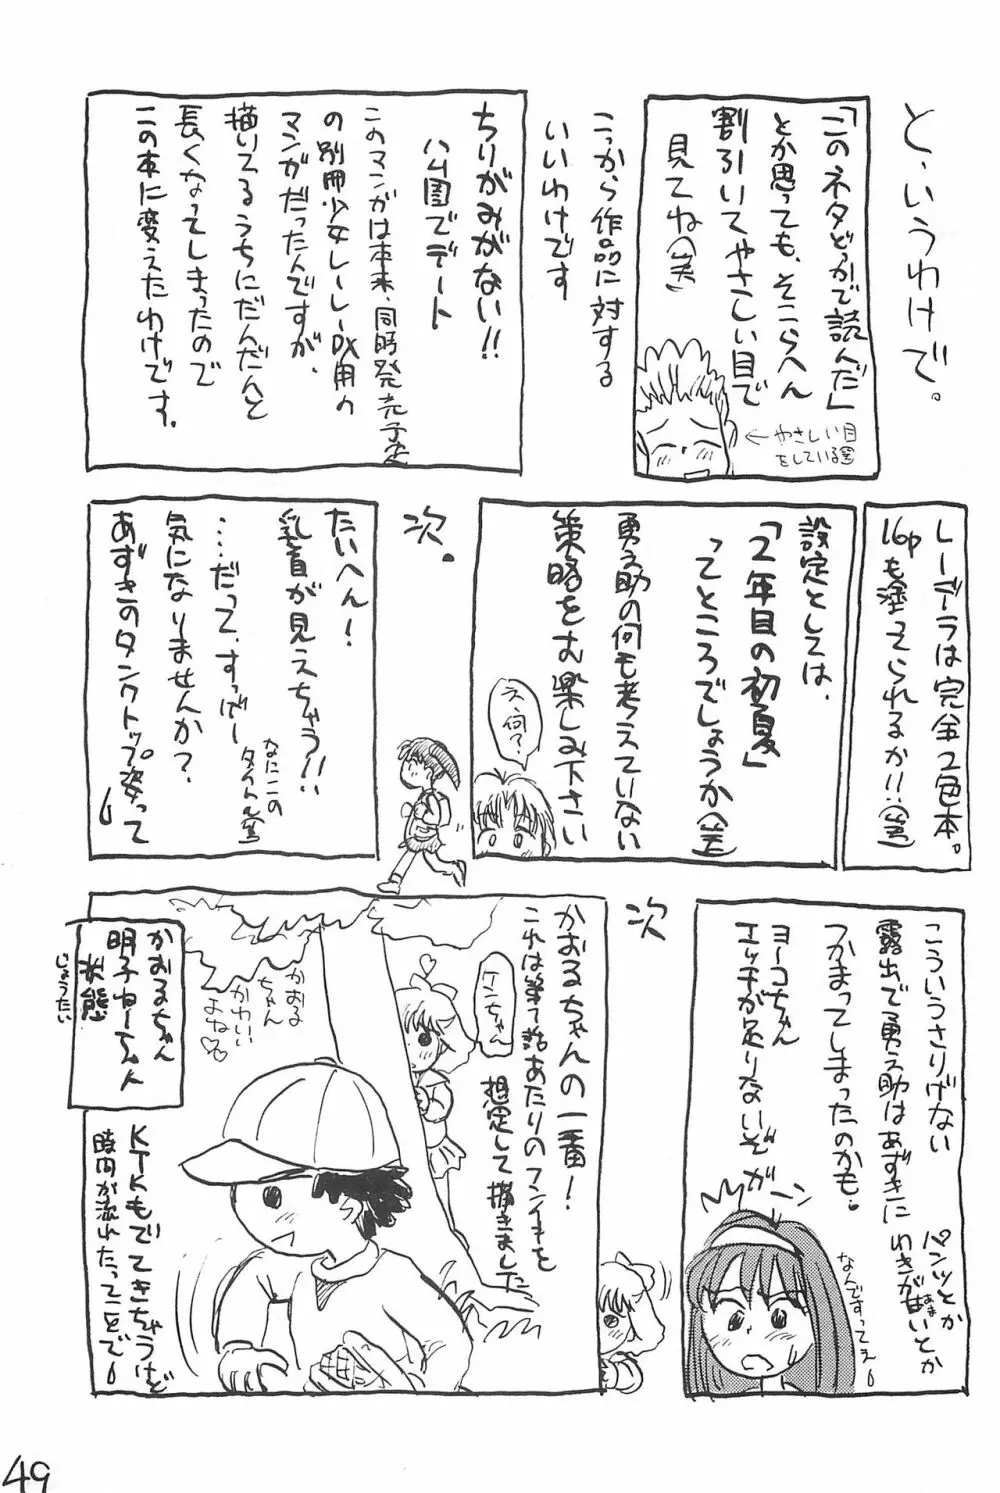 と、いうわけで。
「このネタどっかで読んだ」
とか思っても、そこらへん
割引いてやさしい目で
見てね(笑)
←やさしい目
をしている(笑)
こっから作品に対する
いいわけです
ちりがみがない!!
ハム園でデート
このマンガは本来、同時発売予定
の別冊少女レーレーDX用の
マンガだったんですが、
描いてるうちにだんだんと
長くなってしまったので
この本に変えたわけです。
レーデラは完全2色本。
16pも塗ってられるか!!(笑)
設定としては、
「2年目の初夏」
ってところでしょうか(笑)
勇之助の何も考えていない
策略をお楽しみ下さい
え、何?
次。
たいへん!
乳首が見えちゃう!!
なにこの
タイトル(笑)
……だって、すっげー
気になりませんか?
あずきのタンクトップ姿って
こういうさりげない
露出で勇之助はあずきに
つかまってしまったのかも。
パンツとか
わきが甘いとか
あま
ヨーコちゃん
エッチが足りないぞ
ガーン
なんですってぇ
次
かおるちゃんの一番!
これは第て話あたりのフンイキを
想定して描きました
ケンちゃん
かおる
ちゃん
かわいい
よね
かおるちゃん
明子ねーちゃん
状態
じょうたい
KTKもでてきちゃうけど
時間が流れたってことで
49